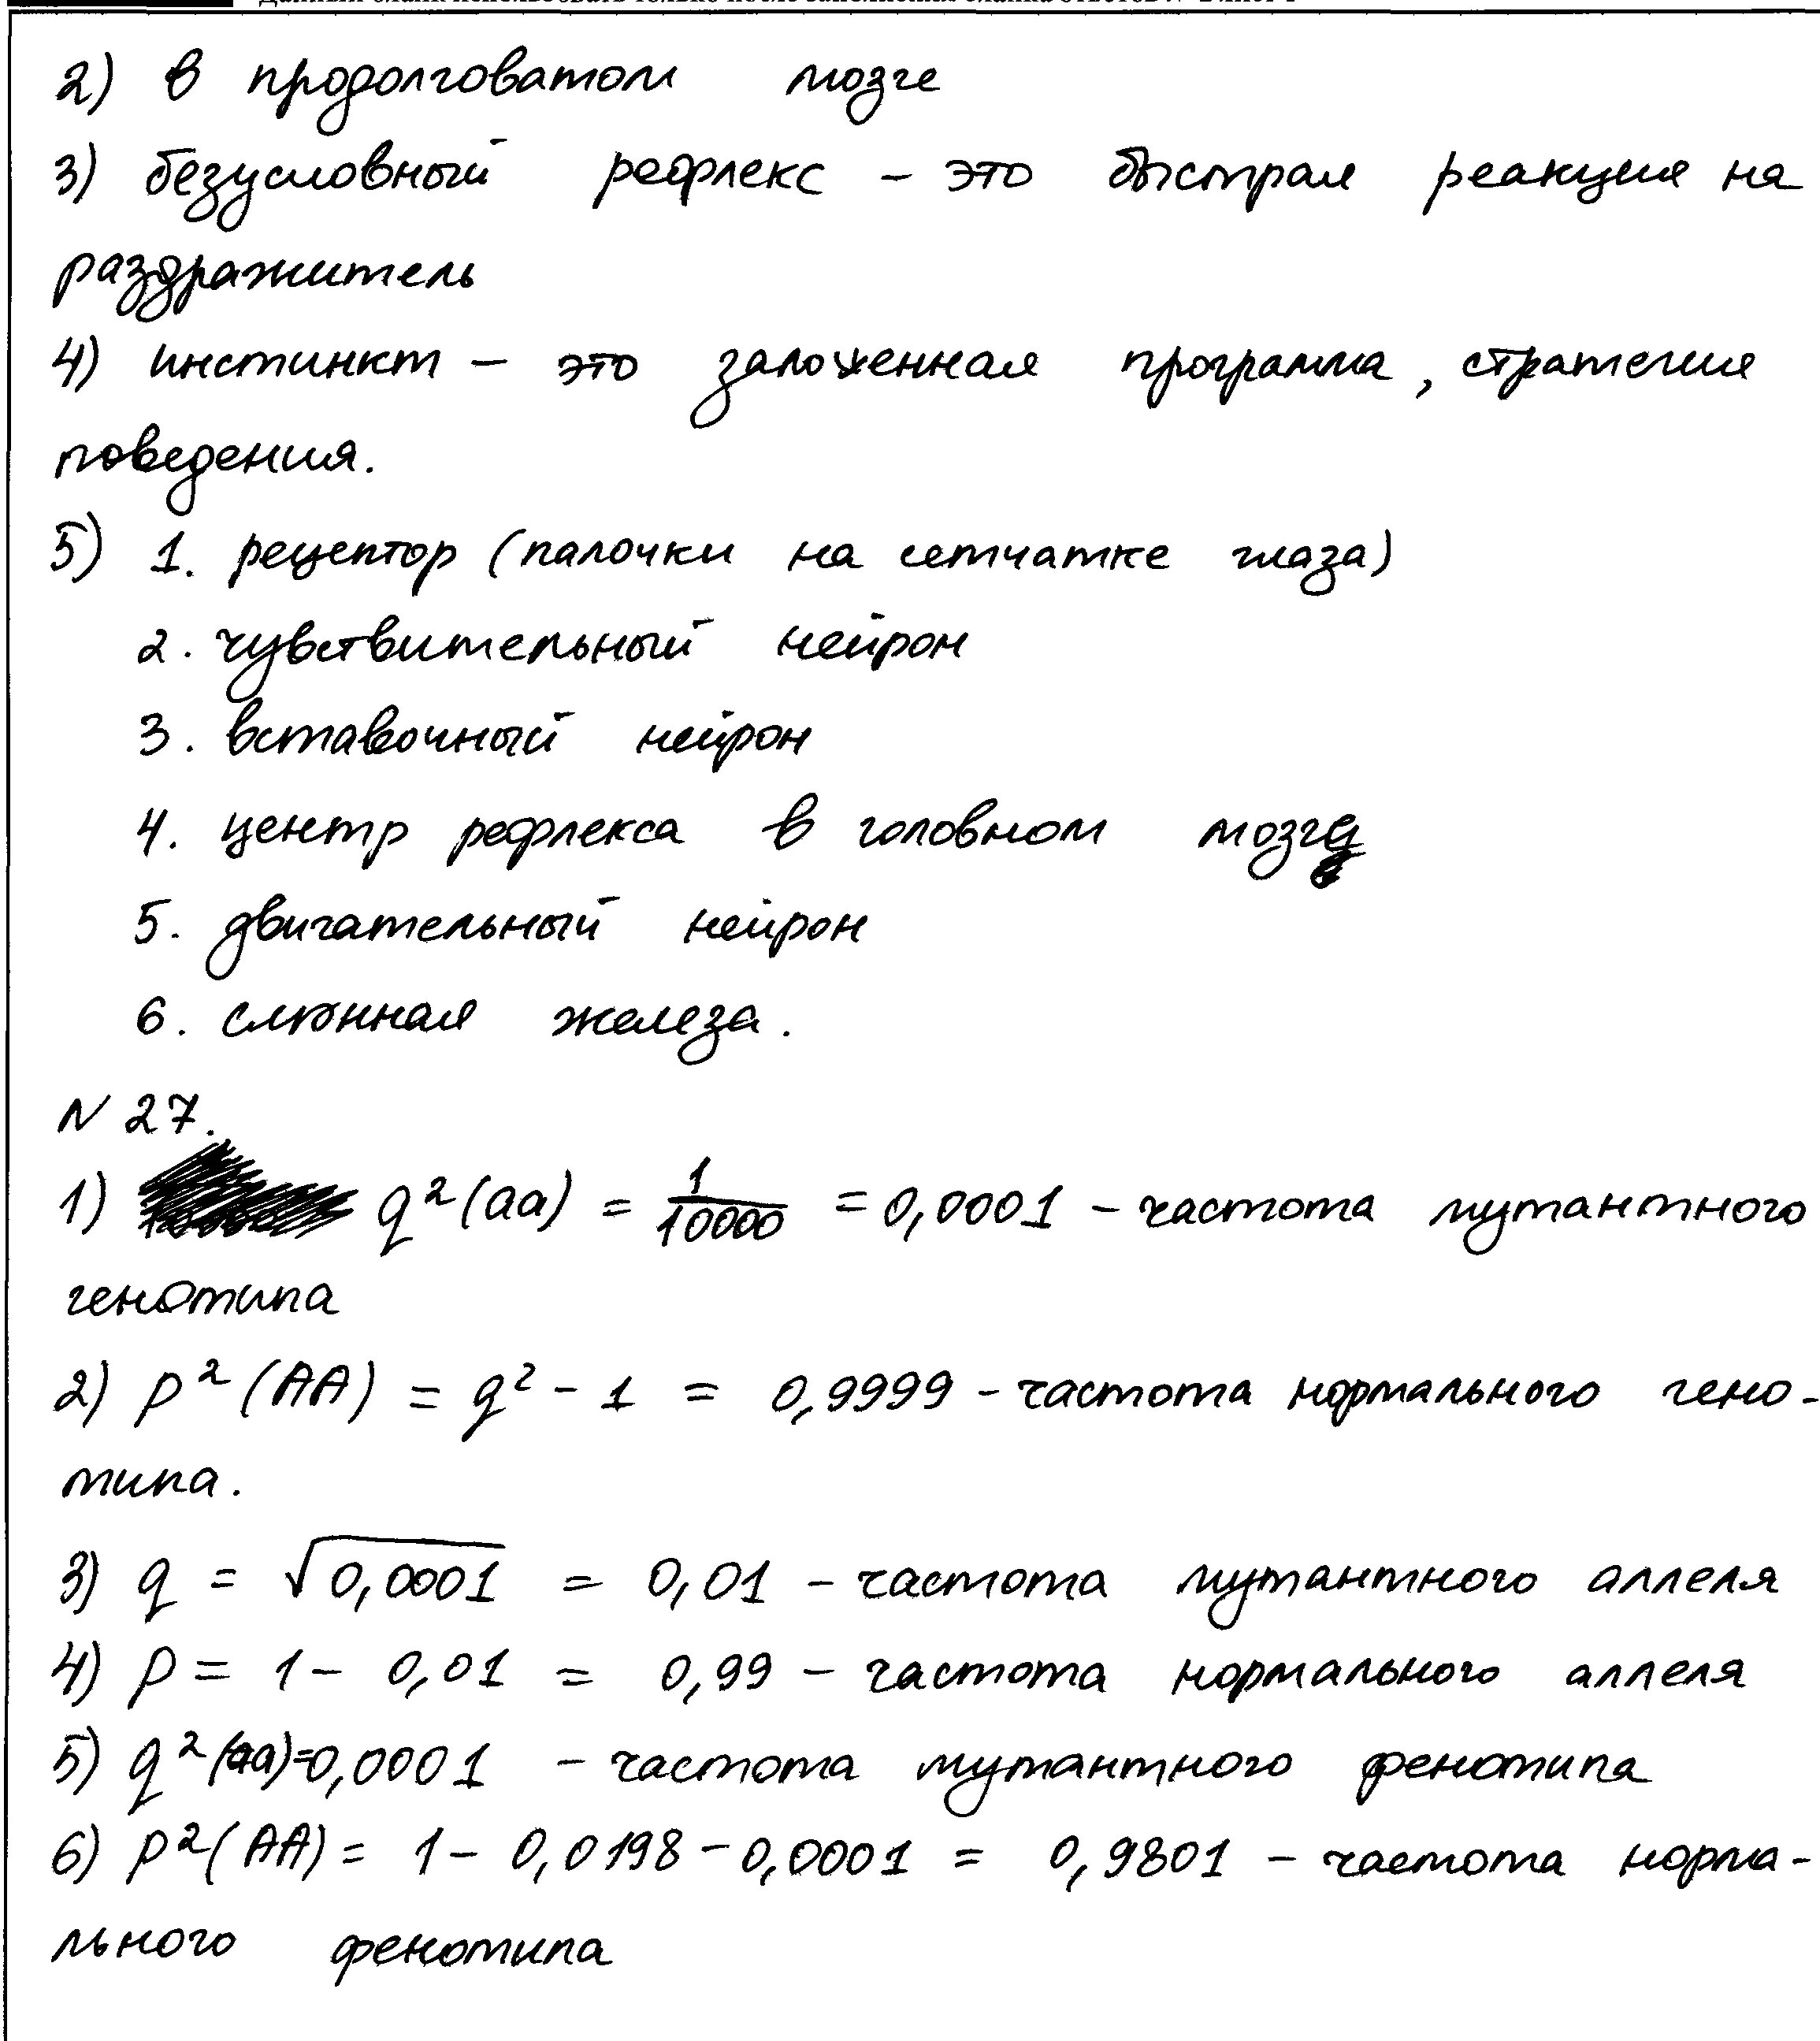 2) в продолговатом мозге
3) безусловный рефлекс – это быстрая реакция на
раздражитель
4) инстинкт – это заложенная программа, стратегия
поведения.
5) 1. рецептор (палочки на сетчатке глаза)
2. чувствительный нейрон
3. вставочный нейрон
4. центр рефлекса в головном мозге
5. двигательный нейрон
6. слюнная железа.
N 27.
1) q²(aa) = 1/10000 = 0,0001 – частота мутантного
генотипа
2) p²(AA) = q² - 1 = 0,9999 – частота нормального гено-
типа.
3) q = √0,0001 = 0,01 – частота мутантного аллеля
4) p = 1 – 0,01 = 0,99 – частота нормального аллеля
5) q²(aa)=0,0001 – частота мутантного фенотипа
6) p²(AA) = 1 – 0,0198 – 0,0001 = 0,9801 – частота норма-
льного фенотипа